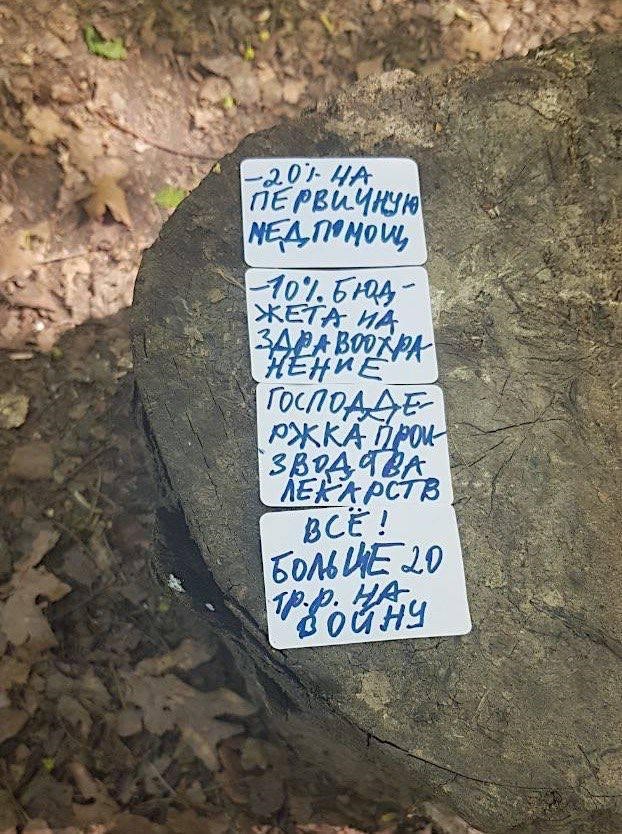 -20% НА
ПЕРВИЧНУЮ
МЕДПОМОЩ
-10% БЮД-
ЖЕТА НА
ЗДРАВООХРА
НЕНИЕ
ГОСПОДДЕ-
РЖКА ПРОИ-
ЗВОДСТВА
ЛЕКАРСТВ
ВСЁ!
БОЛЬШЕ 20
тр.р. НА
ВОЙНУ